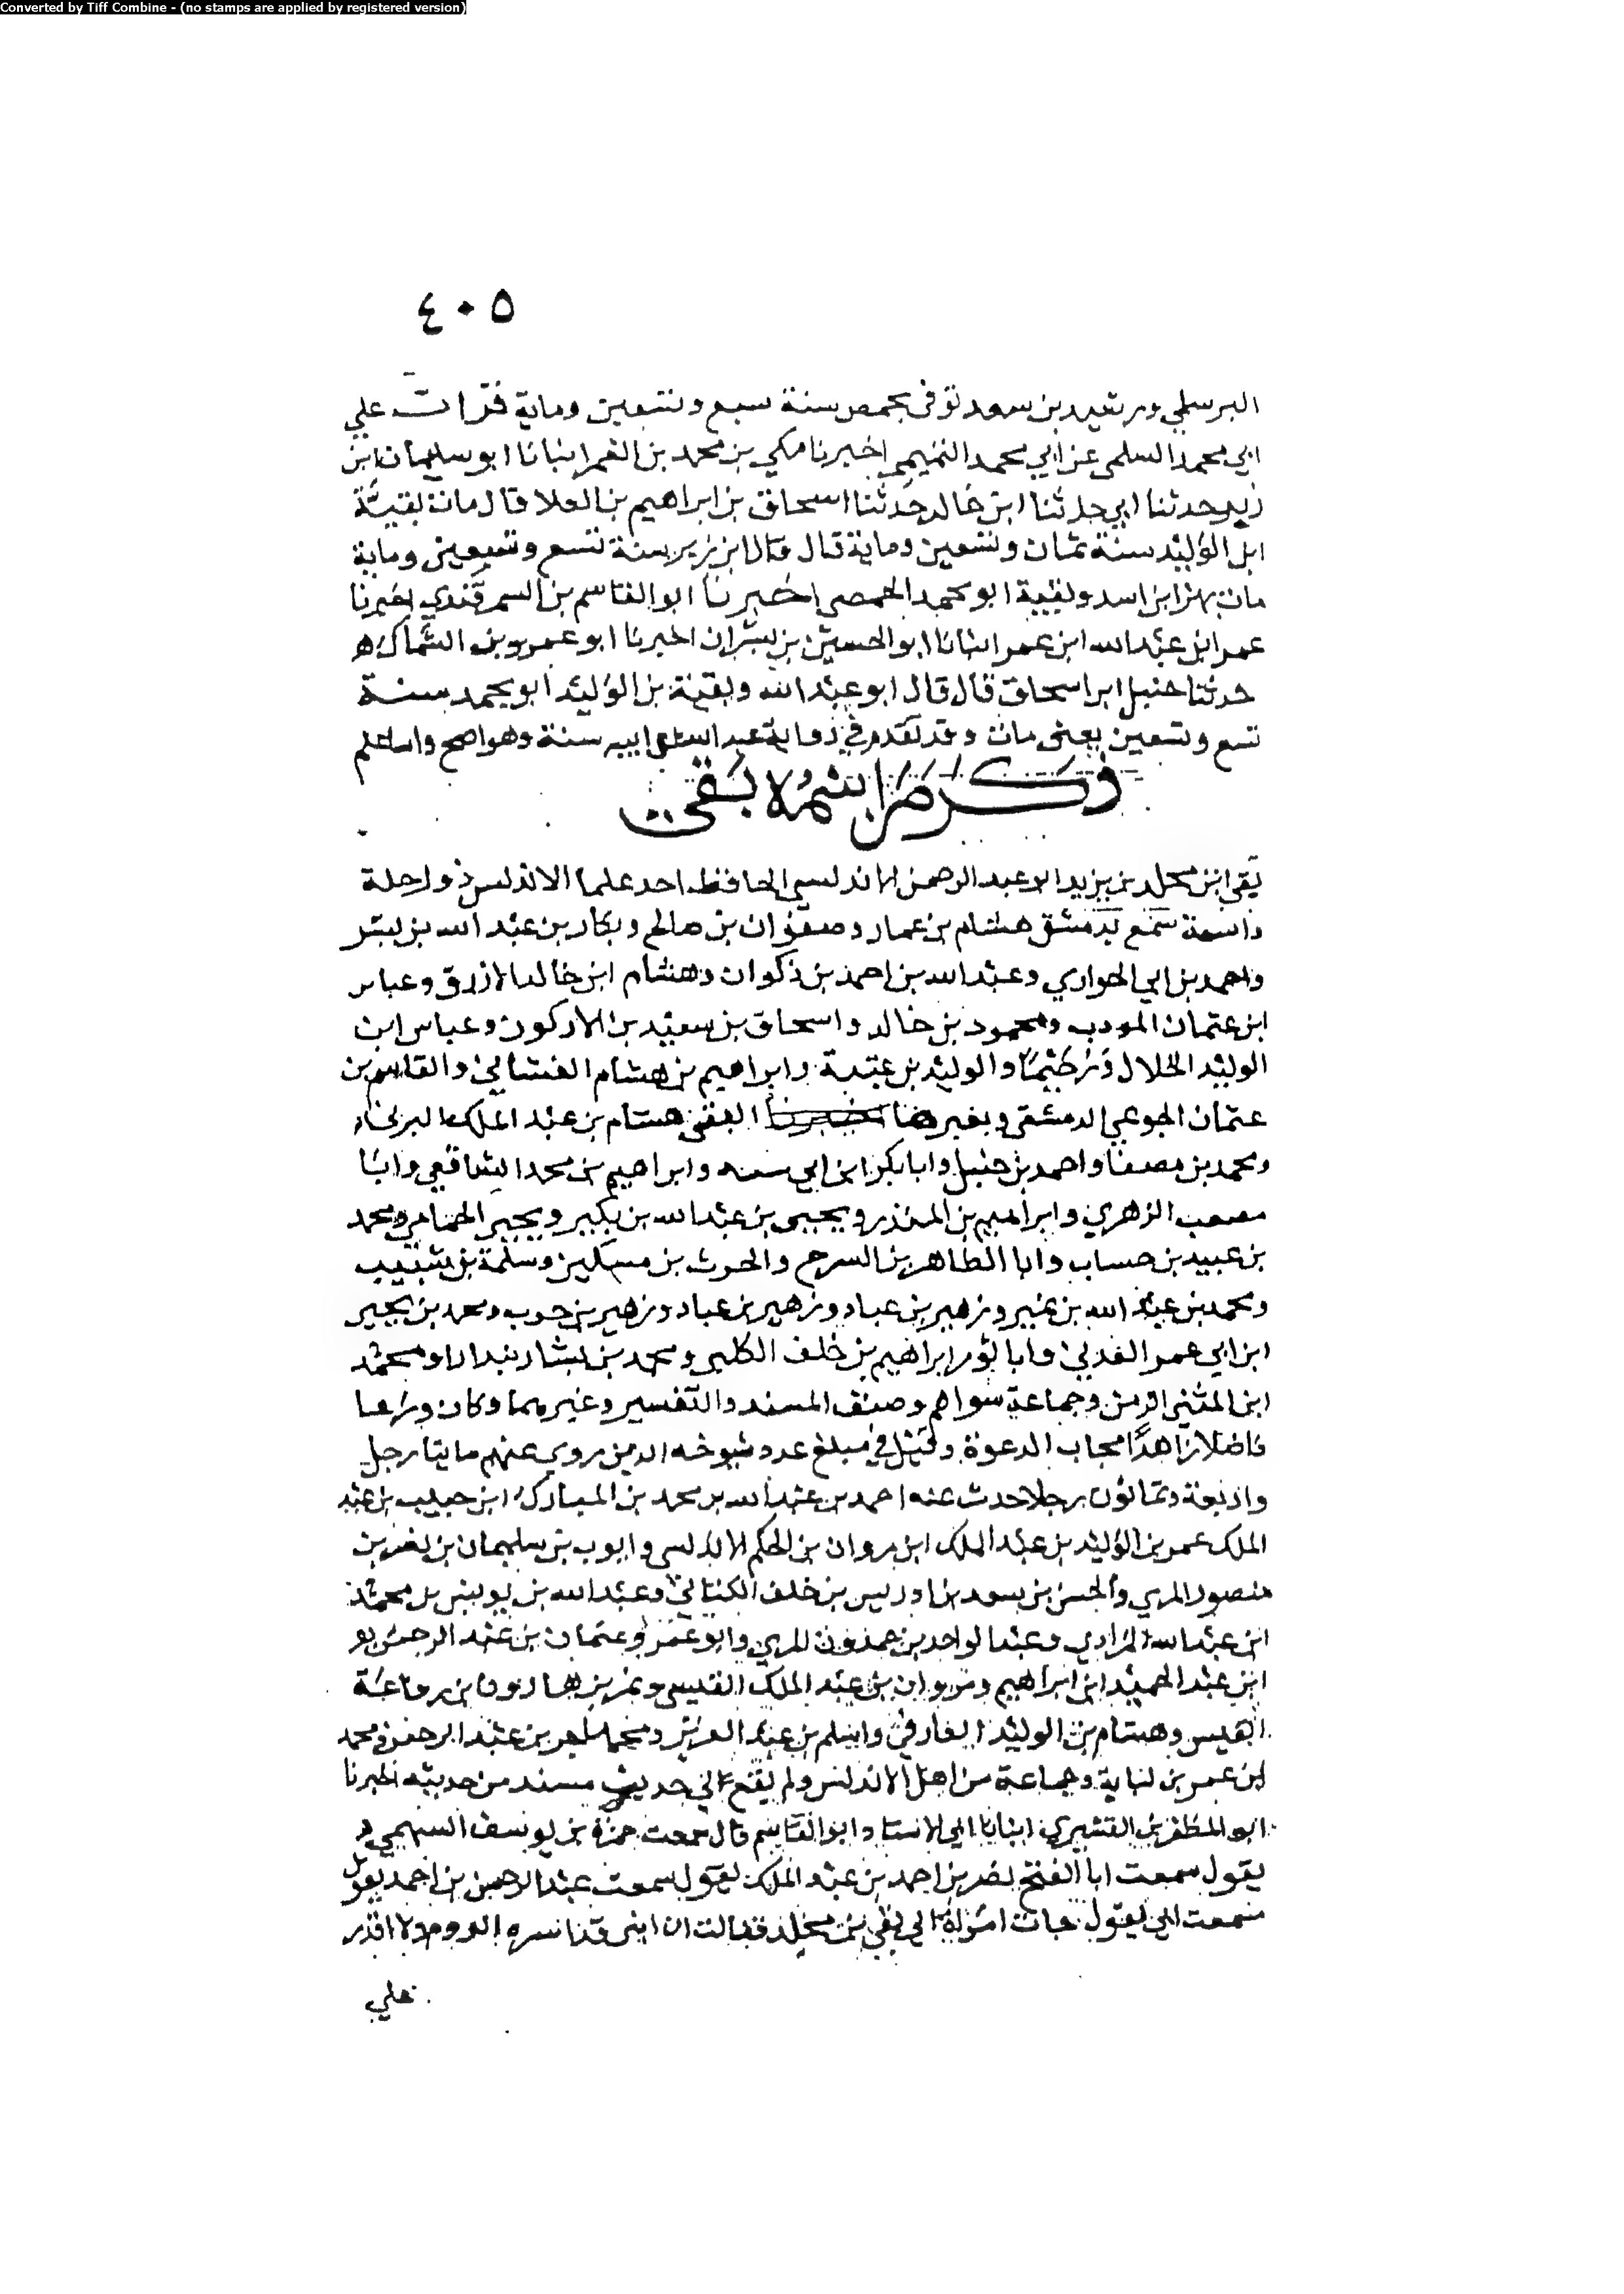 Converted by Tiff Combine - (no stamps are applied by registered version)
٤٠٥
البرسلي ورشيد بن سعد توفى بحمص سنة سبع وتسعين وماية قرات علي
ابي محمد السلمي عن ابي محمد التميمي اخبرنا مكي بن محمد بن الغمر انبانا ابو سليمان ابن
زبر حدثنا ابي حدثنا ابن خالد حدثنا اسحاق بن ابراهيم بن العلا قال مات بقيّة
ابن الوليد سنة ثمان وتسعين وماية قال وقال ابن زبر سنة تسع وتسعين وماية
مات بهز ابن اسد وبقية ابو محمد الحمصي اخبرنا ابو القاسم بن السمرقندي اخبرنا
عمر ابن عبد الله ابن عمر انبانا ابو الحسين بن بشران اخبرنا ابو عمرو بن السماك
حدثنا حنبل ابن اسحاق قال قال ابو عبد الله وبقية بن الوليد ابو يحمد سنة
تسع وتسعين يعنى مات وقد تقدم في رواية عبد الله عن ابيه سنة وهو اصح والله اعلم
ذكر من اسمه بقي
بقي ابن مخلد بن يزيد ابو عبد الرحمن الاندلسي الحافظ احد علما الاندلس ذو رحلة
واسعة سمع بدمشق هشام بن عمار وصفوان بن صالح وبكار بن عبد الله بن بسر
واحمد بن ابي الحواري وعبد الله بن احمد بن ذكوان وهشام ابن خالد الازرق وعباس
ابن عثمان المودب ومحمود بن خالد واسحاق بن سعيد بن الاركون وعباس ابن
الوليد الخلال ودحيما والوليد بن عتبة وابراهيم بن هشام الغساني والقاسم بن
عثمان الجوعي الدمشقي وبغيرها هشام بن عبد الملك اليزني
ومحمد بن مصفا واحمد بن حنبل وابا بكر ابن ابي شيبه وابراهيم بن محمد الشافعي وابا
مصعب الزهري وابراهيم بن المنذر ويحيى بن عبد الله بن بكير ويحيى الحماني ومحمد
بن عبيد بن حساب وابا الطاهر بن السرح والحرث بن مسكين وسلمة بن شبيب
ومحمد بن عبد الله بن نمير وزهير بن عباد وزهير بن عباد وزهير بن حرب ومحمد بن يحيى
ابن ابي عمر العدني وابا ثور ابراهيم بن خلف الكلبي ومحمد بن بشار بندارا ومحمد
ابن المثنى الزمن وجماعة سواهم وصنف المسند والتفسير وغيرهما وكان ورعا
فاضلا زاهدًا مجاب الدعوة وقيل في مبلغ عدد شيوخه الذين روي عنهم مايتا رجل
واربعة وثمانون رجلا حدث عنه احمد بن عبد الله بن محمد بن المبارك ابن حبيب بن عبد
الملك عمر بن الوليد بن عبد الملك ابن مروان بن الحكم الاندلسي وايوب بن سليمان بن نصر بن
منصور المري والحسن بن سعد بن ادريس بن خلف الكتاني وعبد الله بن يونس بن محمد
ابن عبد الله المرادي وعبد الواحد بن حمدون المري وابو عمر وعثمان بن عبد الرحمن
ابن عبد الحميد ابن ابراهيم ومروان بن عبد الملك القيسي ونمر بن هارون بن رفاعة
القيسي وهشام بن الوليد الغافقي واسلم بن عبد العزيز ومهاصر بن عبد الرحمن ومحمد
ابن عمر بن لبابة وجماعة من اهل الاندلس ولم يقع الي حديث مسند من حديثه اخبرنا
ابو المظفر بن القشيري انبانا ابي الاستاد ابو القاسم قال سمعت حمزة بن يوسف السهمي
يقول سمعت ابا الفتح نصر بن احمد بن عبد الملك يقول سمعت عبد الرحمن بن احمد يقول
سمعت ابي يقول جات امراة الي بقي بن مخلد فقالت ان ابني قد اسره الروم ولا اقدر
علي